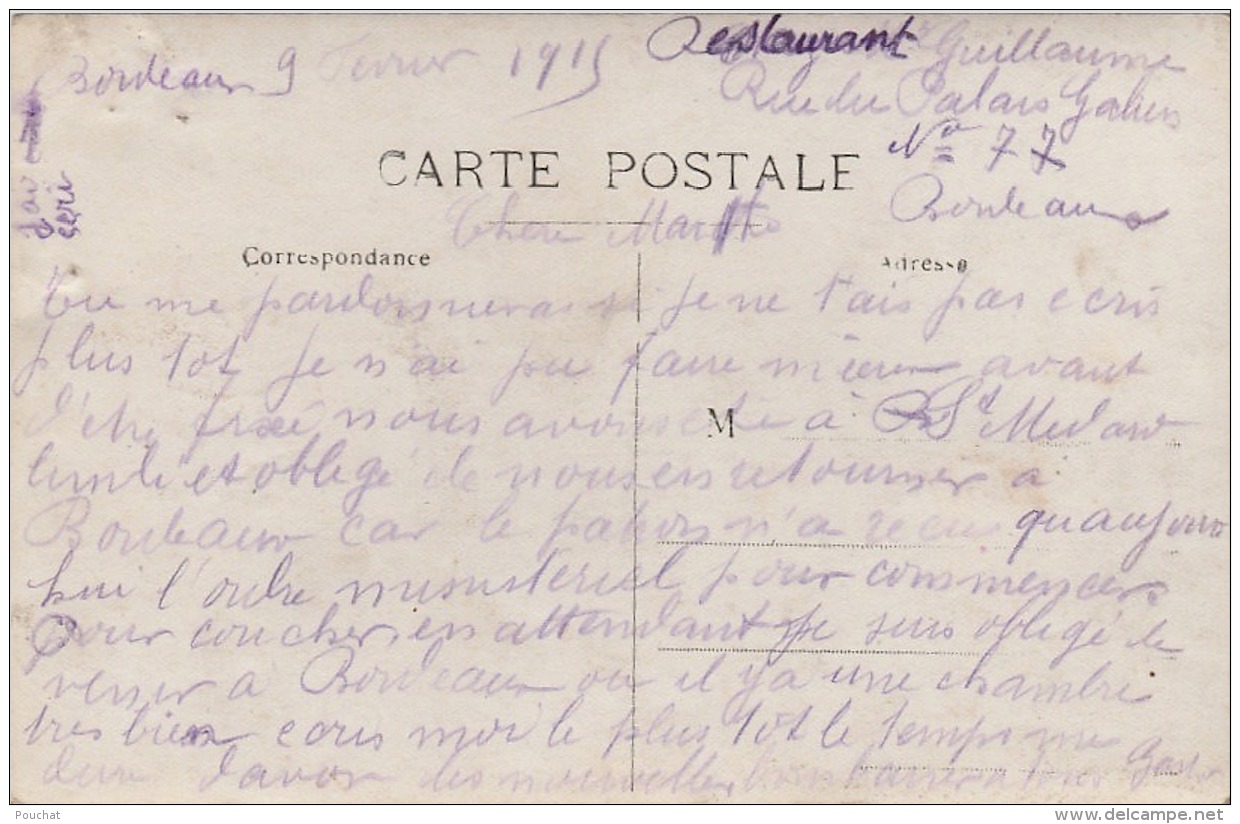 Bordeaux 9 Fevrier 1915
Restaurant Guillaume
Rue du Palais Galien
No 77
Bordeaux
CARTE POSTALE
Chere Marthe
Correspondance
Adresse
Tu me pardonneras si je ne t'ais pas ecris
plus tot je n'ai pu faire mieux avant
d'etre fixé nous avons eté à St Medard
lundi et oblegé de nous en retourner a
Bordeaux car le patron n'a recu qu'aujour
hui l'ordre ministeriel pour commencer
pour coucher en attendant je suis oblegé de
venir a Bordeaux ou il y a une chambre
tres bien ecris moi le plus tot le temps me
dure d'avoir des nouvelles Gaston
M
j'ai
Pouchat
www.delcampe.net